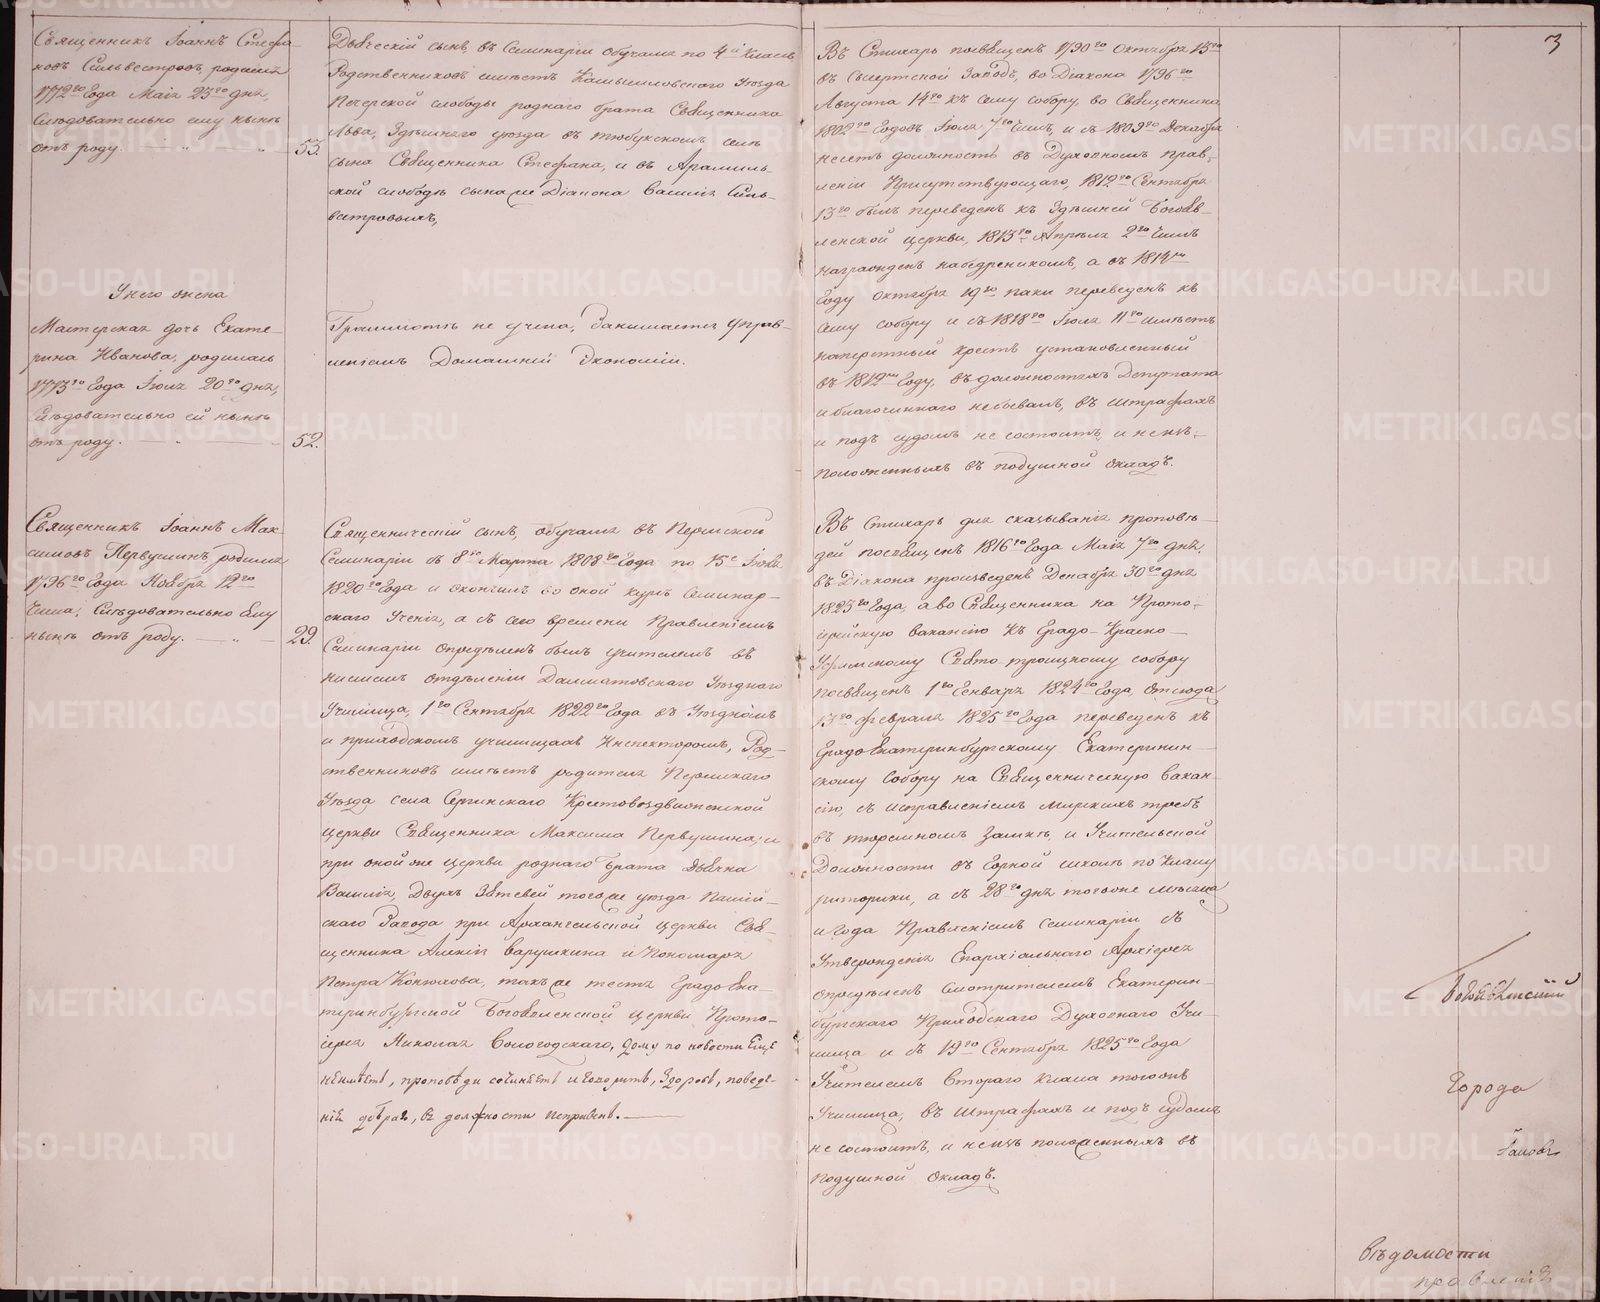 3
Священникъ Іоаннъ Стефа-
новъ Сильвестровъ, родился
1772го Года Маія 23го дня,
Слѣдовательно ему нынѣ
отъ роду. 53.
У него жена
Мастерская дочь Екате-
рина Иванова, родилась
1773го Года Іюля 20го дня,
Слѣдовательно ей нынѣ
отъ роду. 52.
Священникъ Іоаннъ Мак-
симовъ Первушинъ, родился
1796го Года Ноября 12го
Числа, Слѣдовательно Ему
нынѣ отъ роду. 29.
Дьяческій сынъ, въ Семинаріи обучался по 4й Классъ,
Родственниковъ имѣетъ Камышловскаго Уѣзда
слободы роднаго брата Священника
Льва, Здѣшняго уѣзда въ Тюбукскомъ селѣ
сына Священника Стефана, и въ Арамиль-
ской слободѣ сына же Діакона Василія Силь-
вестровыхъ,
Грамматѣ не учена, Занимается Управ-
леніемъ Домашней Экономіи.
Священническій сынъ, обучался въ Пермской
Семинаріи съ 8го Марта 1808го Года по 15е
1820го Года и окончилъ во оной курсъ Семинар-
скаго Ученія, а съ сего времени Правленіемъ
Семинаріи опредѣленъ былъ учителемъ въ
низшемъ отдѣленіи Далматовскаго Уѣзднаго
Училища, 1го Сентября 1822го Года въ Уѣздномъ
и приходскомъ училищахъ Инспекторомъ, Род-
ственниковъ имѣетъ родителя Пермскаго
Уѣзда села Сергинскаго Крестовоздвиженской
Церкви Священника Максима Первушина, и
при оной же Церкви роднаго брата Дьячка
Василія, Двухъ Зятевей того же уѣзда
скаго Завода при Архангельской Церкви Свя-
щенника Алексія Варушкина и Пономаря
Петра Конюхова, такъ же тестя Градо Ека-
теринбургской Богоявленской Церкви Прото-
іерея Николая Вологодскаго, дому по новости Еще
неимѣетъ, проповѣди сочиняетъ и говоритъ, здоровъ, поведе-
нія добраго, въ должности исправенъ.
Въ Стихарь посвященъ 1790го Октября 15го
въ Сысертской Заводъ, во Діакона 1796го
Августа 14го къ сему собору, во Священника
1802го Годовъ Іюля 7го Числъ, и съ 1809го Декабря
несетъ должность въ Духовномъ прав-
леніи Присутствующаго, 1812го Сентября
13го былъ переведенъ къ Здѣшней Богояв-
ленской церкви, 1813го Апрѣля 2го Числъ
награжденъ набедренникомъ, а въ 1814мъ
Году Октября 19го паки переведенъ къ
сему собору и съ 1818го Іюля 11го имѣетъ
наперстный крестъ установленный
въ 1812мъ Году, въ должностяхъ Депутата
и благочиннаго небывалъ, въ штрафахъ
и подъ судомъ не состоитъ, и неизъ-
положенныхъ въ подушной окладъ.
Въ Стихарь для сказыванія проповѣ-
дей посвященъ 1816го Года Маія 7го дня,
въ Діакона произведенъ Декабря 30го дня
1823го Года, а во Священника на Прото-
іерейскую вакансію къ Градо-Красно-
Уфимскому Свято-троицкому собору
посвященъ 1го Генваря 1824го Года, Отсюда
13го февраля 1825го Года переведенъ къ
Градо Екатеринбургскому Екатеринин-
скому Собору на Священническую вакан-
сію, съ исправленіемъ мирскихъ требъ
въ тюремномъ замкѣ, и Учительской
Должности въ Горной школѣ по Классу
риторики, а съ 28го дня того же мѣсяца
и Года Правленіемъ Семинаріи съ
Утвержденія Епархіальнаго Архіерея
опредѣленъ Смотрителемъ Екатерин-
бургскаго Приходскаго Духовнаго Учи-
лища и съ 19го Сентября 1825го Года
Учителемъ Втораго класса тогоже
Училища, въ штрафахъ и подъ судомъ
не состоитъ, и неизъ положенныхъ въ
подушной окладъ.
Города
вѣдомости
правленія
METRIKI.GASO-URAL.RU